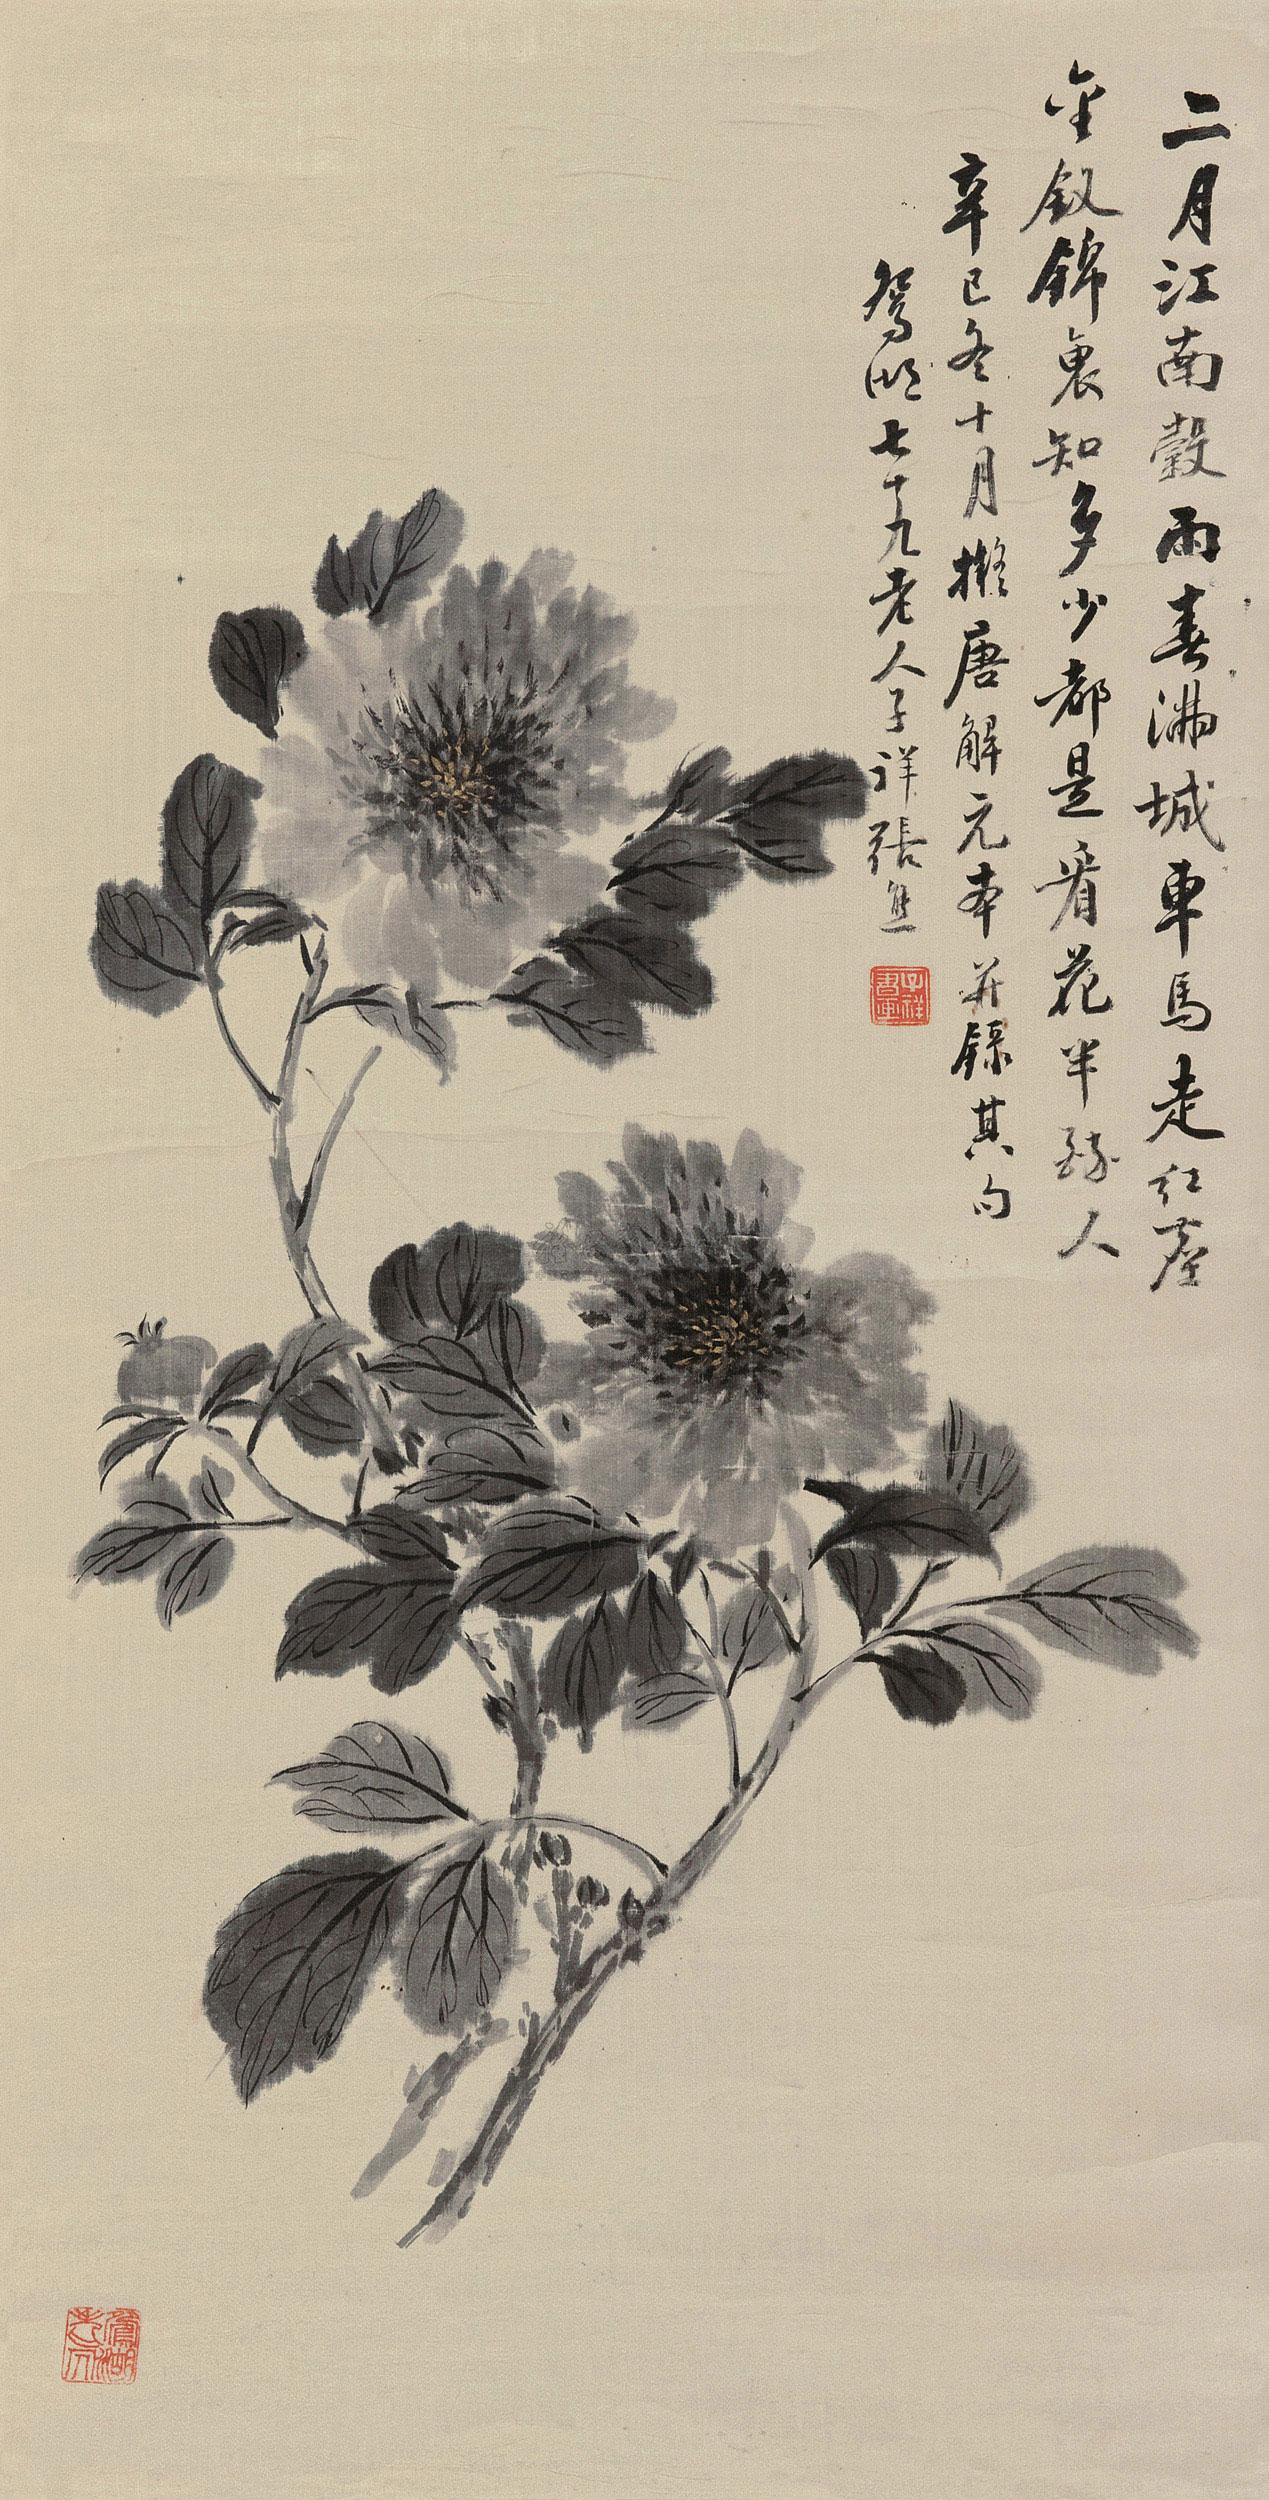 二月江南穀雨春滿城車馬走紅塵
金釵錦裏知多少都是看花半醉人
辛巳冬十月擬唐解元本并錄其句
鴛湖七十九老人子祥張熊
子祥書畫
鴛湖老人